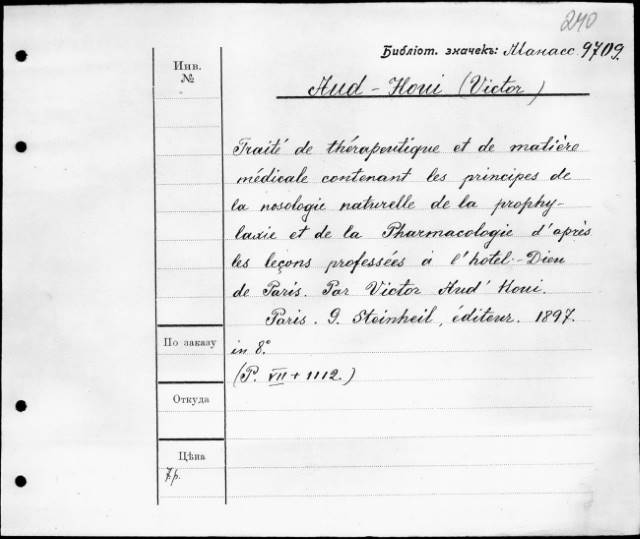 240
Библіот. значекъ: Манасс. 9709.
Инв.
№
Aud-Houi (Victor)
Traité de thérapeutique et de matière
médicale contenant les principes de
la nosologie naturelle de la prophy-
laxie et de la Pharmacologie d'après
les leçons professées à l'hotel-Dieu
de Paris. Par Victor Aud' Houi.
Paris. G. Steinheil, éditeur. 1897.
По заказу
in 8º
(P. VII + 1112.)
Откуда
Цѣна
7р.